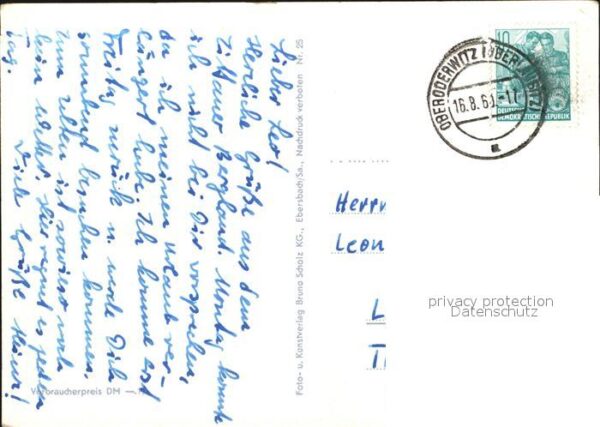 Lieber Leo!
Herzliche Grüße aus dem
Zittauer Bergland. Montag konnte
ich nicht bei Dir vorsprechen,
da ich meinen Urlaub ver-
längert habe. Ich komme erst
Freitag zurück u. werde Dich
Sonnabend besuchen kommen.
Zum zelten ist sowieso noch
kein Wetter. Hier regnet es jeden
Tag.
Viele Grüße
Verbraucherpreis DM
Foto- u. Kunstverlag Bruno Scholz KG., Ebersbach/Sa., Nachdruck verboten Nr. 25
OBERODERWITZ (OBERLAUSITZ)
16.8.61-17
a
10
DEUTSCHE
DEMOKRATISCHE REPUBLIK
Herrn
Leon
L
T
privacy protection
Datenschutz